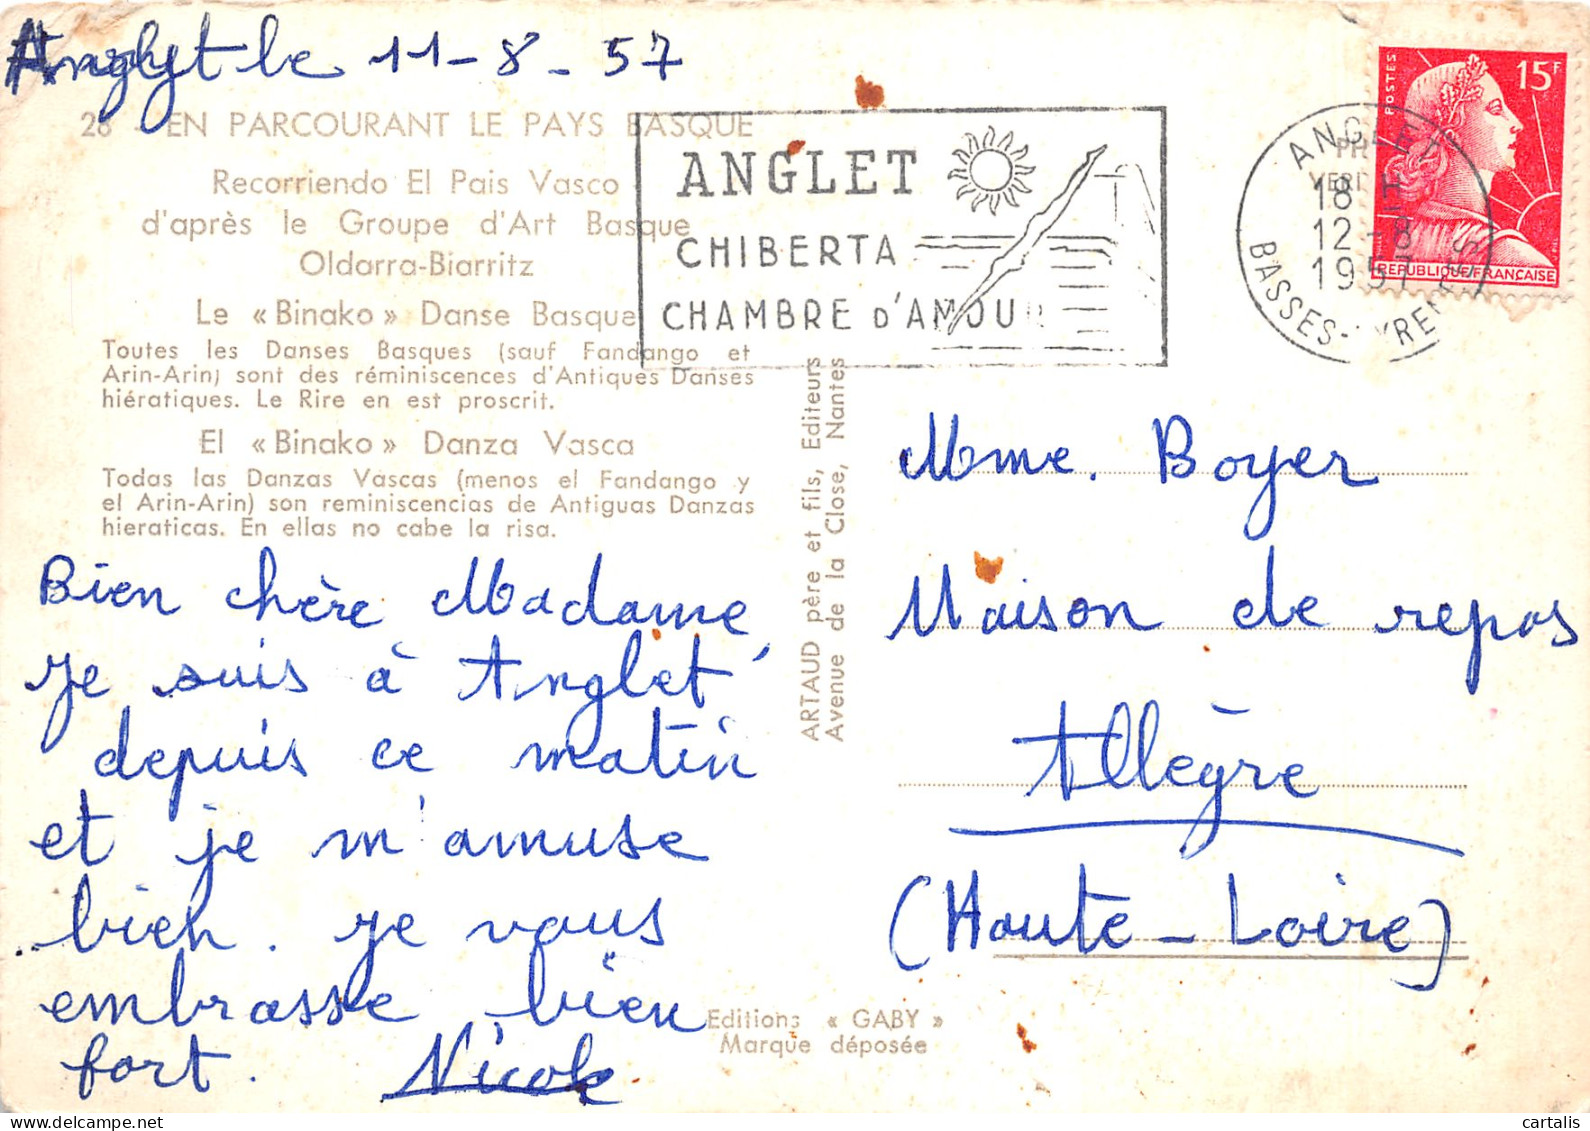 Anglet le 11-8-57
28 - EN PARCOURANT LE PAYS BASQUE
Recorriendo El Pais Vasco
d'après le Groupe d'Art Basque
Oldarra-Biarritz
Le « Binako » Danse Basque
Toutes les Danses Basques (sauf Fandango et
Arin-Arin) sont des réminiscences d'Antiques Danses
hiératiques. Le Rire en est proscrit.
El « Binako » Danza Vasca
Todas las Danzas Vascas (menos el Fandango y
el Arin-Arin) son reminiscencias de Antiguas Danzas
hieraticas. En ellas no cabe la risa.
Bien chère Madame,
Je suis à Anglet
depuis ce matin
et je m'amuse
bien. Je vous
embrasse bien
fort. Nicole
ANGLET
CHIBERTA
CHAMBRE D'AMOUR
ANGLET
18 H
12-8
1957
BASSES-PYRENEES
POSTES
15F
REPUBLIQUE FRANÇAISE
ARTAUD père et fils, Editeurs
Avenue de la Close, Nantes
Mme. Boyer
Maison de repos
Allègre
(Haute-Loire)
Editions « GABY »
Marque déposée
cartalis.com